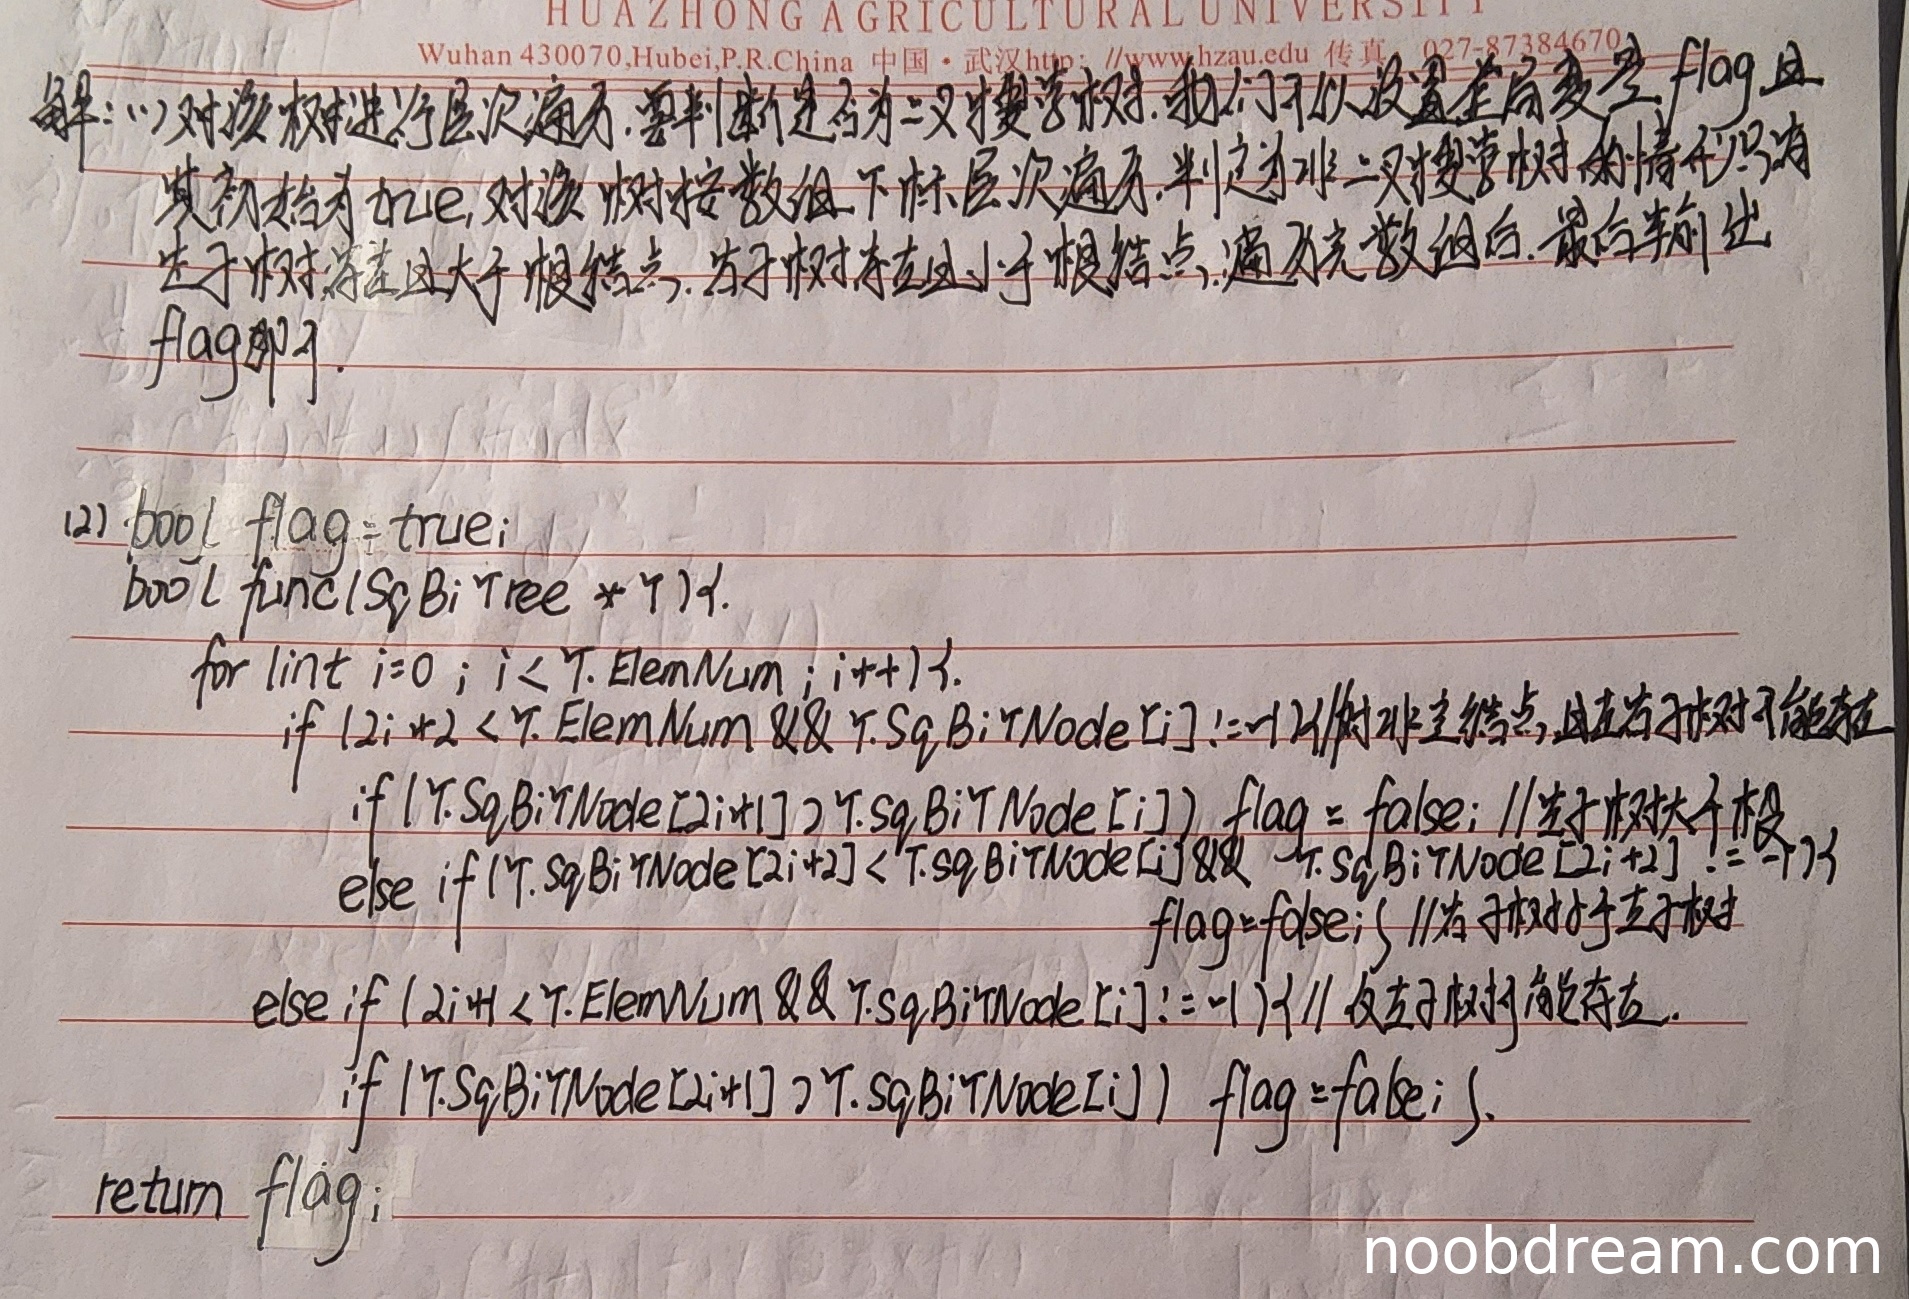 HUAZHONG AGRICULTURAL UNIVERSITY
Wuhan 430070,Hubei,P.R.China 中国·武汉http: //www.hzau.edu 传真 027-87384670
解:(1)对该树进行层次遍历.要判断是否为二叉搜索树.我们可以设置全局变量flag且
其初始为true,对该树按数组下标层次遍历.判定为非二叉搜索树的情形只有
左子树存在且大于根结点.右子树存在且小于根结点.遍历完数组后.最后输出
flag即可.
(2) bool flag=true;
bool func(SqBiTree *T){.
for(int i=0; i<T.ElemNum; i++){.
if(2i+2<T.ElemNum && T.SqBiTNode[i]!=-1){//对非空结点,且左右子树可能存在
if(T.SqBiTNode[2i+1]>T.SqBiTNode[i]) flag = false; //左子树大于根
else if(T.SqBiTNode[2i+2]<T.SqBiTNode[i]&& T.SqBiTNode[2i+2] != -1){
flag=false;} //右子树小于左子树
else if(2i+1<T.ElemNum && T.SqBiTNode[i]!=-1){// 仅左子树可能存在.
if(T.SqBiTNode[2i+1]>T.SqBiTNode[i]) flag=false; }.
return flag;
noobdream.com